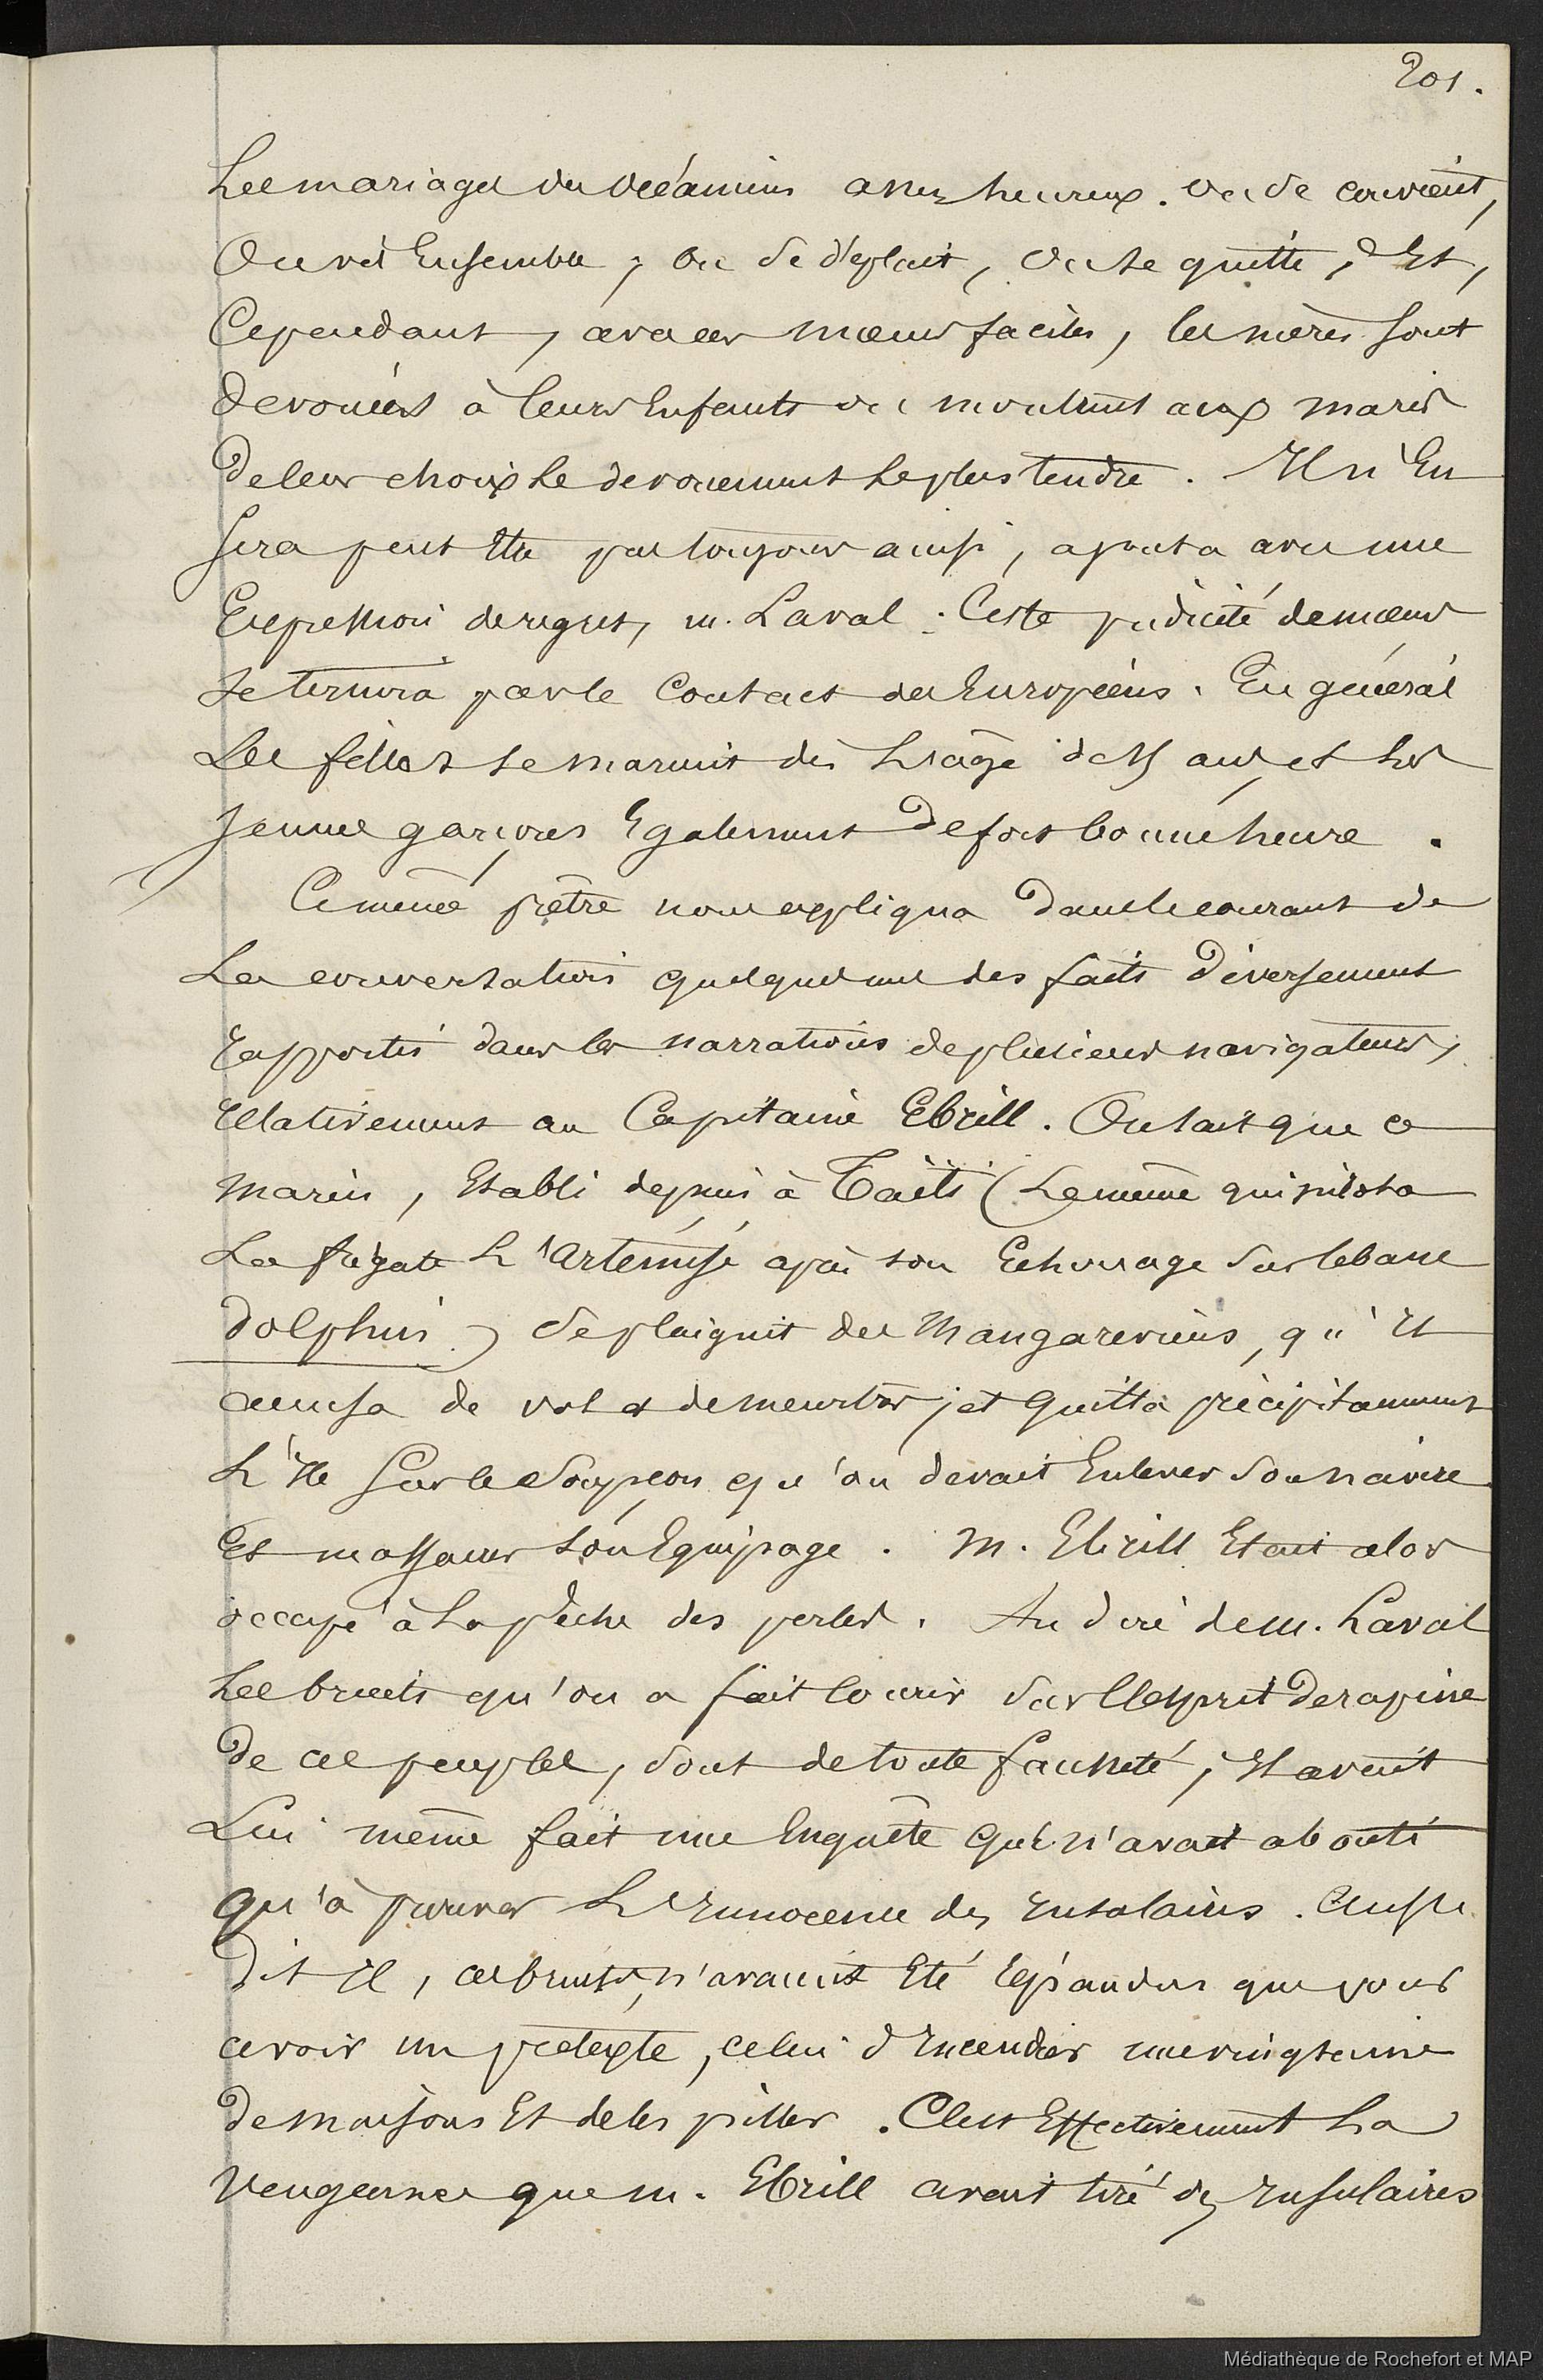 201.
Les mariages des Océaniens assez heureux. On se convient,
On vit Ensemble ; On se déplait, On se quitte ; Et,
Cependant, avec ces mœurs faciles, les mères sont
devouées à leurs Enfants et montrent aux maris
de leur choix le devouement le plus tendre. Il n'En
sera peut Etre pas toujours ainsi, ajouta avec une
Expression de regret, m. Laval : Cette pudicité de mœurs
se ternira par le Contact des Européens. En général
Les filles se marient dès l'age de 15 ans, et les
Jeunes garçons Egalement de fort bonne heure.
Ce même prêtre nous expliqua dans le courant de
La conversation quelques uns des faits diversement
rapportés dans les narrations de plusieurs navigateurs,
relativement au Capitaine Ebrill. On sait que ce
marin, Etabli depuis à Taïti (Le même qui pilota
La frégate L'Artémise après son Echouage sur le banc
dolphin) se plaignit des Mangareviens, qu'il
accusa de vol et de meurtres, et quitta précipitamment
L'Ile sur le soupçon qu'on devait Enlever son navire
Et massacrer son Equipage. M. Ebrill Etait alors
occupé à La pêche des perles. Au dire de m. Laval
Les bruits qu'on a fait courir sur l'esprit de rapine
de ces peuples, sont de toute fausseté ; Il avait
Lui même fait une Enquête qui n'avait abouti
qu'à prouver L'Innocence des Insulaires. Aussi
dit Il, ces bruits, n'avaient Eté répandus que pour
avoir un prétexte, celui d'Incendier une vingtaine
de maisons Et de les piller. C'est Effectivement La
Vengeance que m. Ebrill avait tiré des Insulaires
Médiathèque de Rochefort et MAP